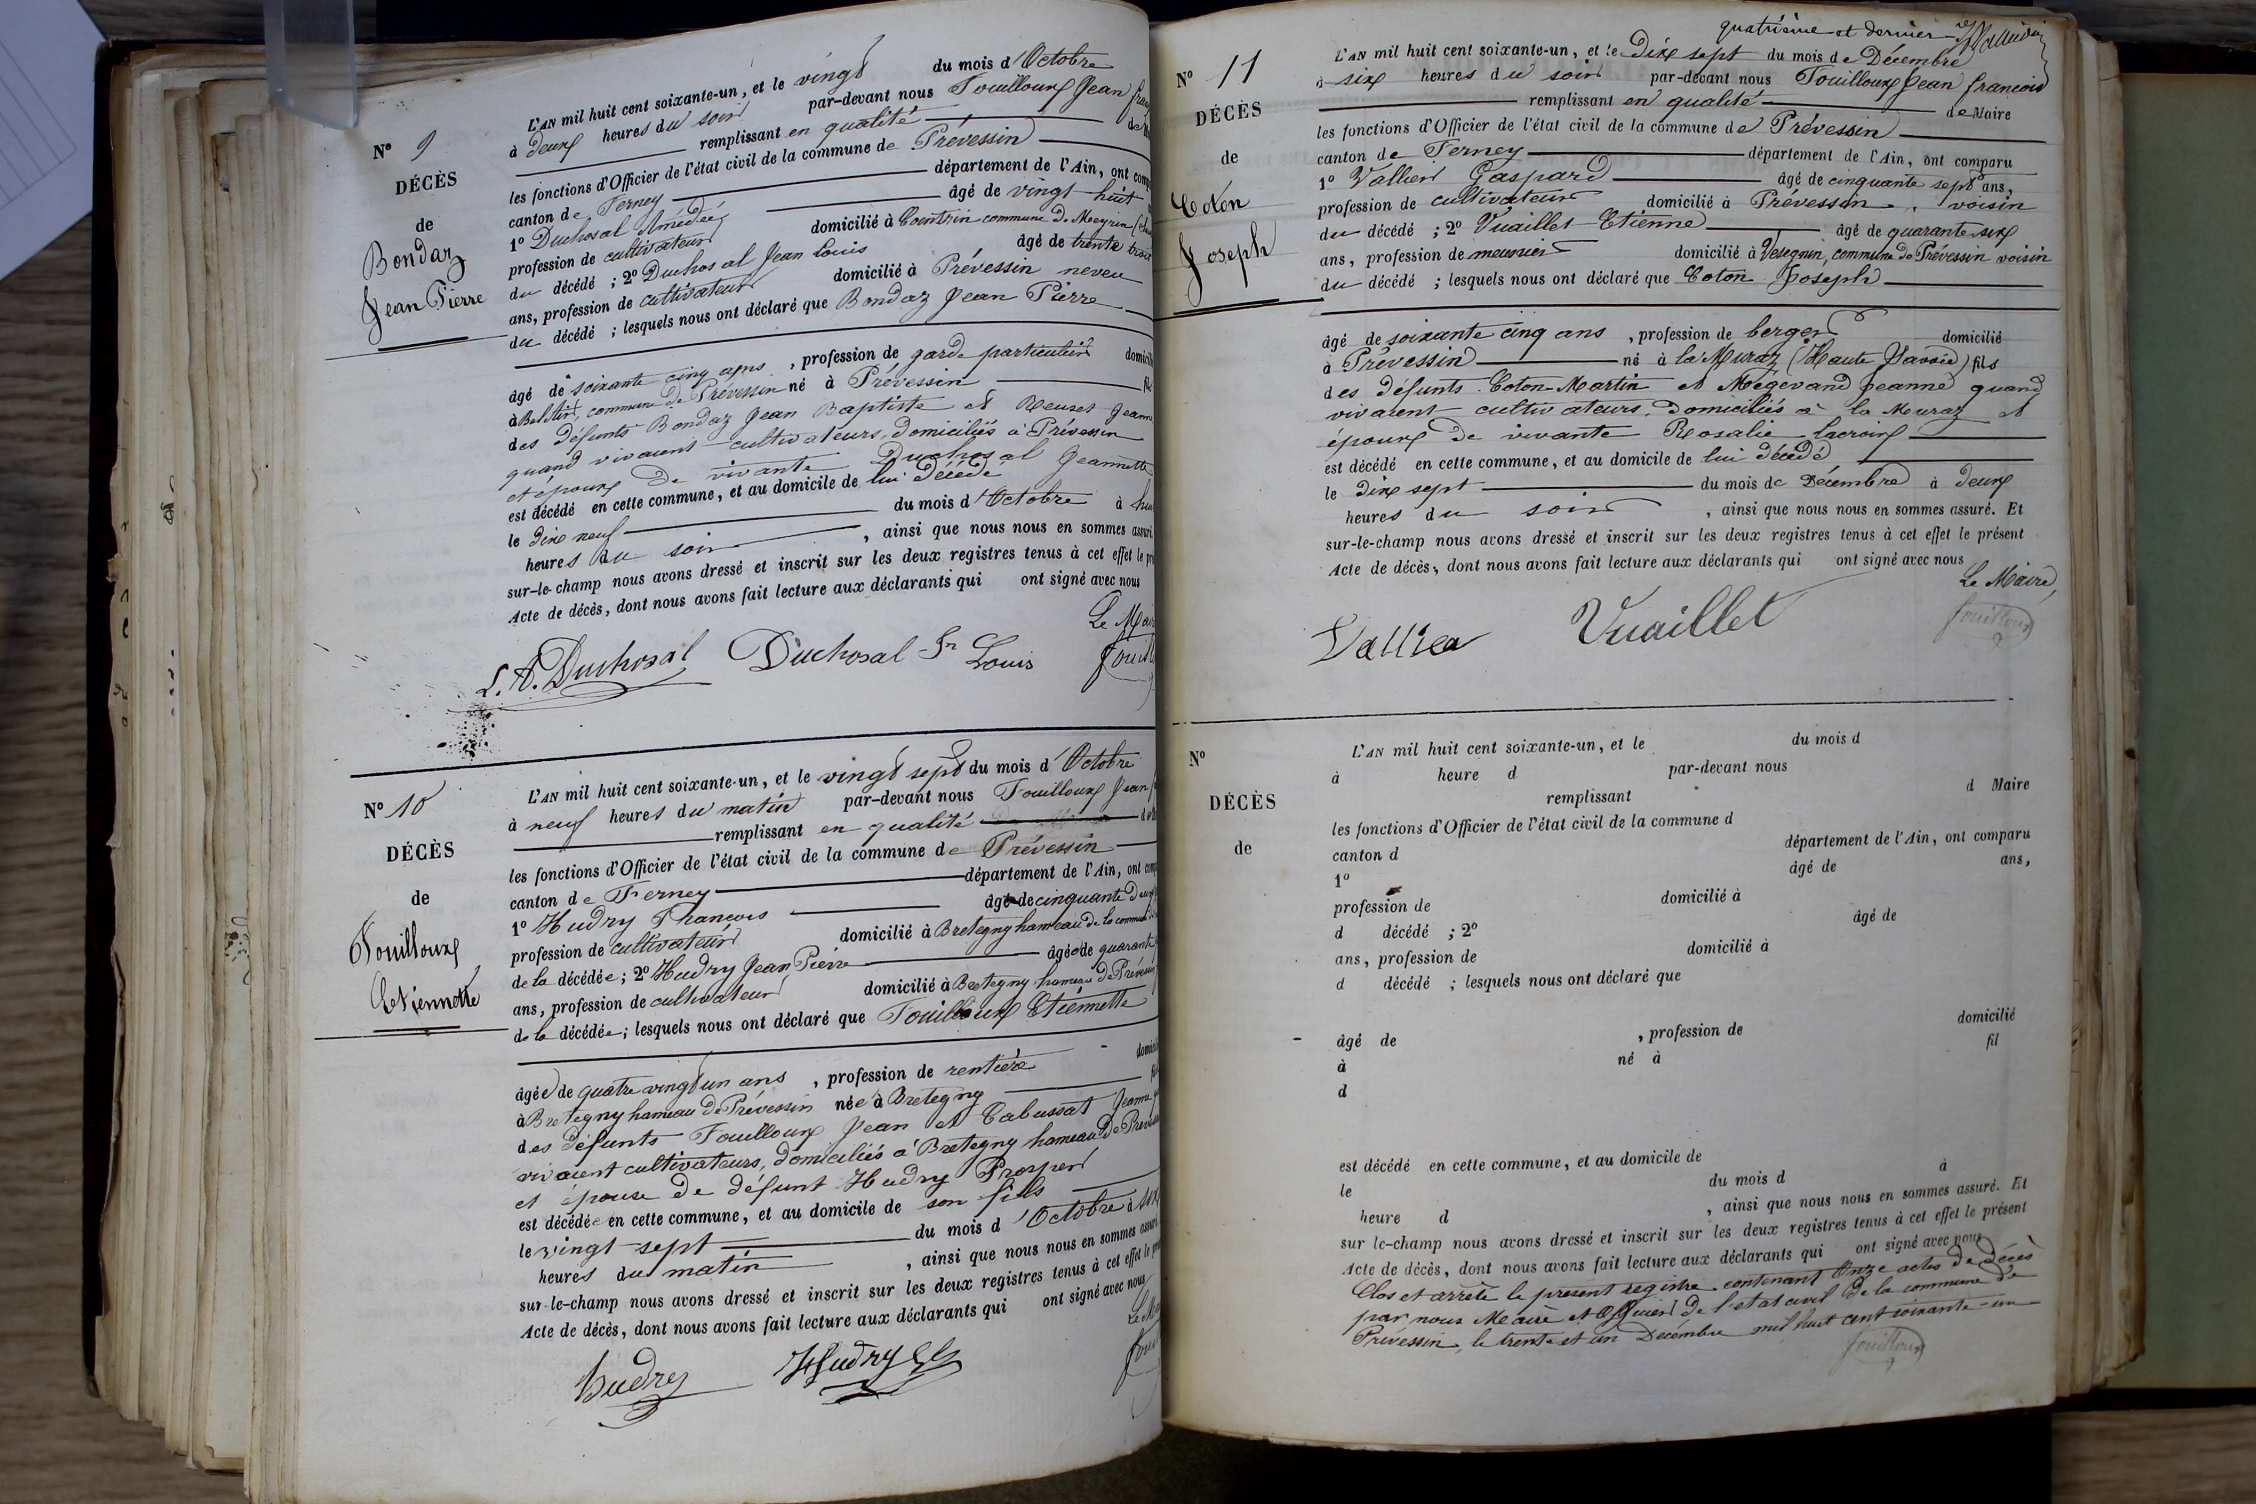 N° 9
DÉCÈS
de
Bondaz
Jean Pierre
L'AN mil huit cent soixante-un, et le vingt du mois d'Octobre
à deux heures du soir par-devant nous Fouilloux Jean
remplissant en qualité
les fonctions d'Officier de l'état civil de la commune de Prévessin
canton de Ferney département de l'Ain, ont
1° Duchosal Amédée âgé de vingt huit
profession de cultivateur domicilié à Cointrin commune de Meyrin
du décédé ; 2° Duchosal Jean Louis âgé de trente trois
ans, profession de cultivateur domicilié à Prévessin neveu
du décédé ; lesquels nous ont déclaré que Bondaz Jean Pierre
âgé de soixante cinq ans, profession de garde particulier
à commune de Prévessin né à Prévessin
des défunts Bondaz Jean Baptiste et Jeanne
quand vivaient cultivateurs, domiciliés à Prévessin
et époux de vivante Duchosal Jeannette
est décédé en cette commune, et au domicile de lui décédé
le dix neuf du mois d'Octobre à
heures du soir, ainsi que nous nous en sommes
sur-le-champ nous avons dressé et inscrit sur les deux registres tenus à cet effet le
Acte de décès, dont nous avons fait lecture aux déclarants qui ont signé avec nous
Le
L. A. Duchosal Duchosal Jn Louis
N° 10
DÉCÈS
de
Fouilloux
Etiennette
L'AN mil huit cent soixante-un, et le vingt sept du mois d'Octobre
à neuf heures du matin par-devant nous Fouilloux Jean
remplissant en qualité
les fonctions d'Officier de l'état civil de la commune de Prévessin
canton de Ferney département de l'Ain, ont
1° Hudry François âgé de cinquante deux
profession de cultivateur domicilié à Bretegny hameau de la commune
de la décédée ; 2° Hudry Jean Pierre âgé de quarante
ans, profession de cultivateur domicilié à Bretegny hameau de Prévessin
de la décédée ; lesquels nous ont déclaré que Fouilloux Etiennette
âgée de quatre vingt un ans, profession de rentière
à Bretegny hameau de Prévessin née à Bretegny
des défunts Fouilloux Jean et Cabussat Jeanne
vivaient cultivateurs, domiciliés à Bretegny hameau de Prévessin
et épouse de défunt Hudry Prosper
est décédée en cette commune, et au domicile de son fils
le vingt-sept du mois d'Octobre à six
heures du matin, ainsi que nous nous en sommes
sur-le-champ nous avons dressé et inscrit sur les deux registres tenus à cet effet le
Acte de décès, dont nous avons fait lecture aux déclarants qui ont signé avec nous
Hudry Hudry
quatrième et dernier
N° 11
DÉCÈS
de
Coton
Joseph
L'AN mil huit cent soixante-un, et le Dix sept du mois de Décembre
à six heures du soir par-devant nous Fouilloux Jean françois
remplissant en qualité de Maire
les fonctions d'Officier de l'état civil de la commune de Prévessin
canton de Ferney département de l'Ain, ont comparu
1° Vallier Gaspard âgé de cinquante sept ans,
profession de cultivateur domicilié à Prévessin, voisin
du décédé ; 2° Vuaillet Etienne âgé de quarante six
ans, profession de meunier domicilié à Vesegnin, commune de Prévessin voisin
du décédé ; lesquels nous ont déclaré que Coton Joseph
âgé de soixante cinq ans, profession de berger domicilié
à Prévessin né à la Muraz (Haute Savoie) fils
des défunts Coton Martin et Mégevand Jeanne quand
vivaient cultivateurs, domiciliés à la Muraz et
époux de vivante Rosalie Lacroix
est décédé en cette commune, et au domicile de lui décédé
le dix sept du mois de Décembre à deux
heures du soir, ainsi que nous nous en sommes assuré. Et
sur-le-champ nous avons dressé et inscrit sur les deux registres tenus à cet effet le présent
Acte de décès, dont nous avons fait lecture aux déclarants qui ont signé avec nous
Le Maire,
Vallier Vuaillet Fouilloux
N°
DÉCÈS
de
L'AN mil huit cent soixante-un, et le du mois d
à heure d par-devant nous
remplissant d Maire
les fonctions d'Officier de l'état civil de la commune d
canton d département de l'Ain, ont comparu
1° âgé de ans,
profession de domicilié à
d décédé ; 2° âgé de
ans, profession de domicilié à
d décédé ; lesquels nous ont déclaré que
âgé de , profession de domicilié
à né à fil
d
est décédé en cette commune, et au domicile de
le du mois d à
heure d , ainsi que nous nous en sommes assuré. Et
sur le-champ nous avons dressé et inscrit sur les deux registres tenus à cet effet le présent
Acte de décès, dont nous avons fait lecture aux déclarants qui ont signé avec nous
Clos et arrêté le présent registre contenant Onze actes de décès
par nous Maire et Officier de l'etat civil de la commune de
Prévessin, le trente et un Décembre mil huit cent soixante-un
Fouilloux